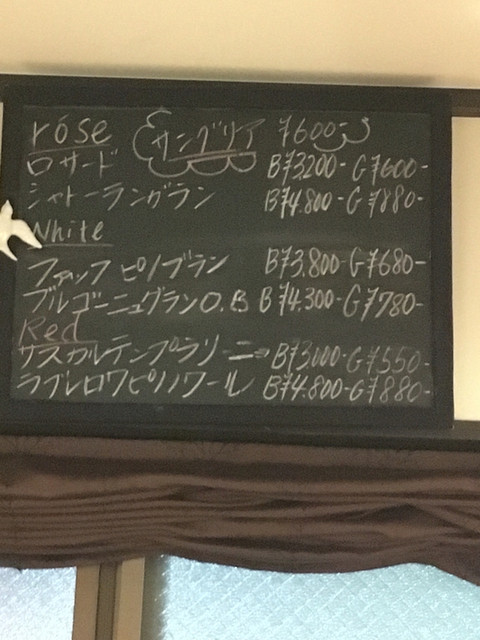 róse サングリア ¥600-
ロザード B¥3,200- G¥600-
シャトーランガラン B¥4.800- G¥880-
White
ファップ ピノブラン B¥3.800- G¥680-
ブルゴーニュグランO.B B¥4.300- G¥780-
Red
サスカルテンプラリーニョ B¥3,000- G¥550-
ラブレロワピノノワール B¥4.800- G¥880-